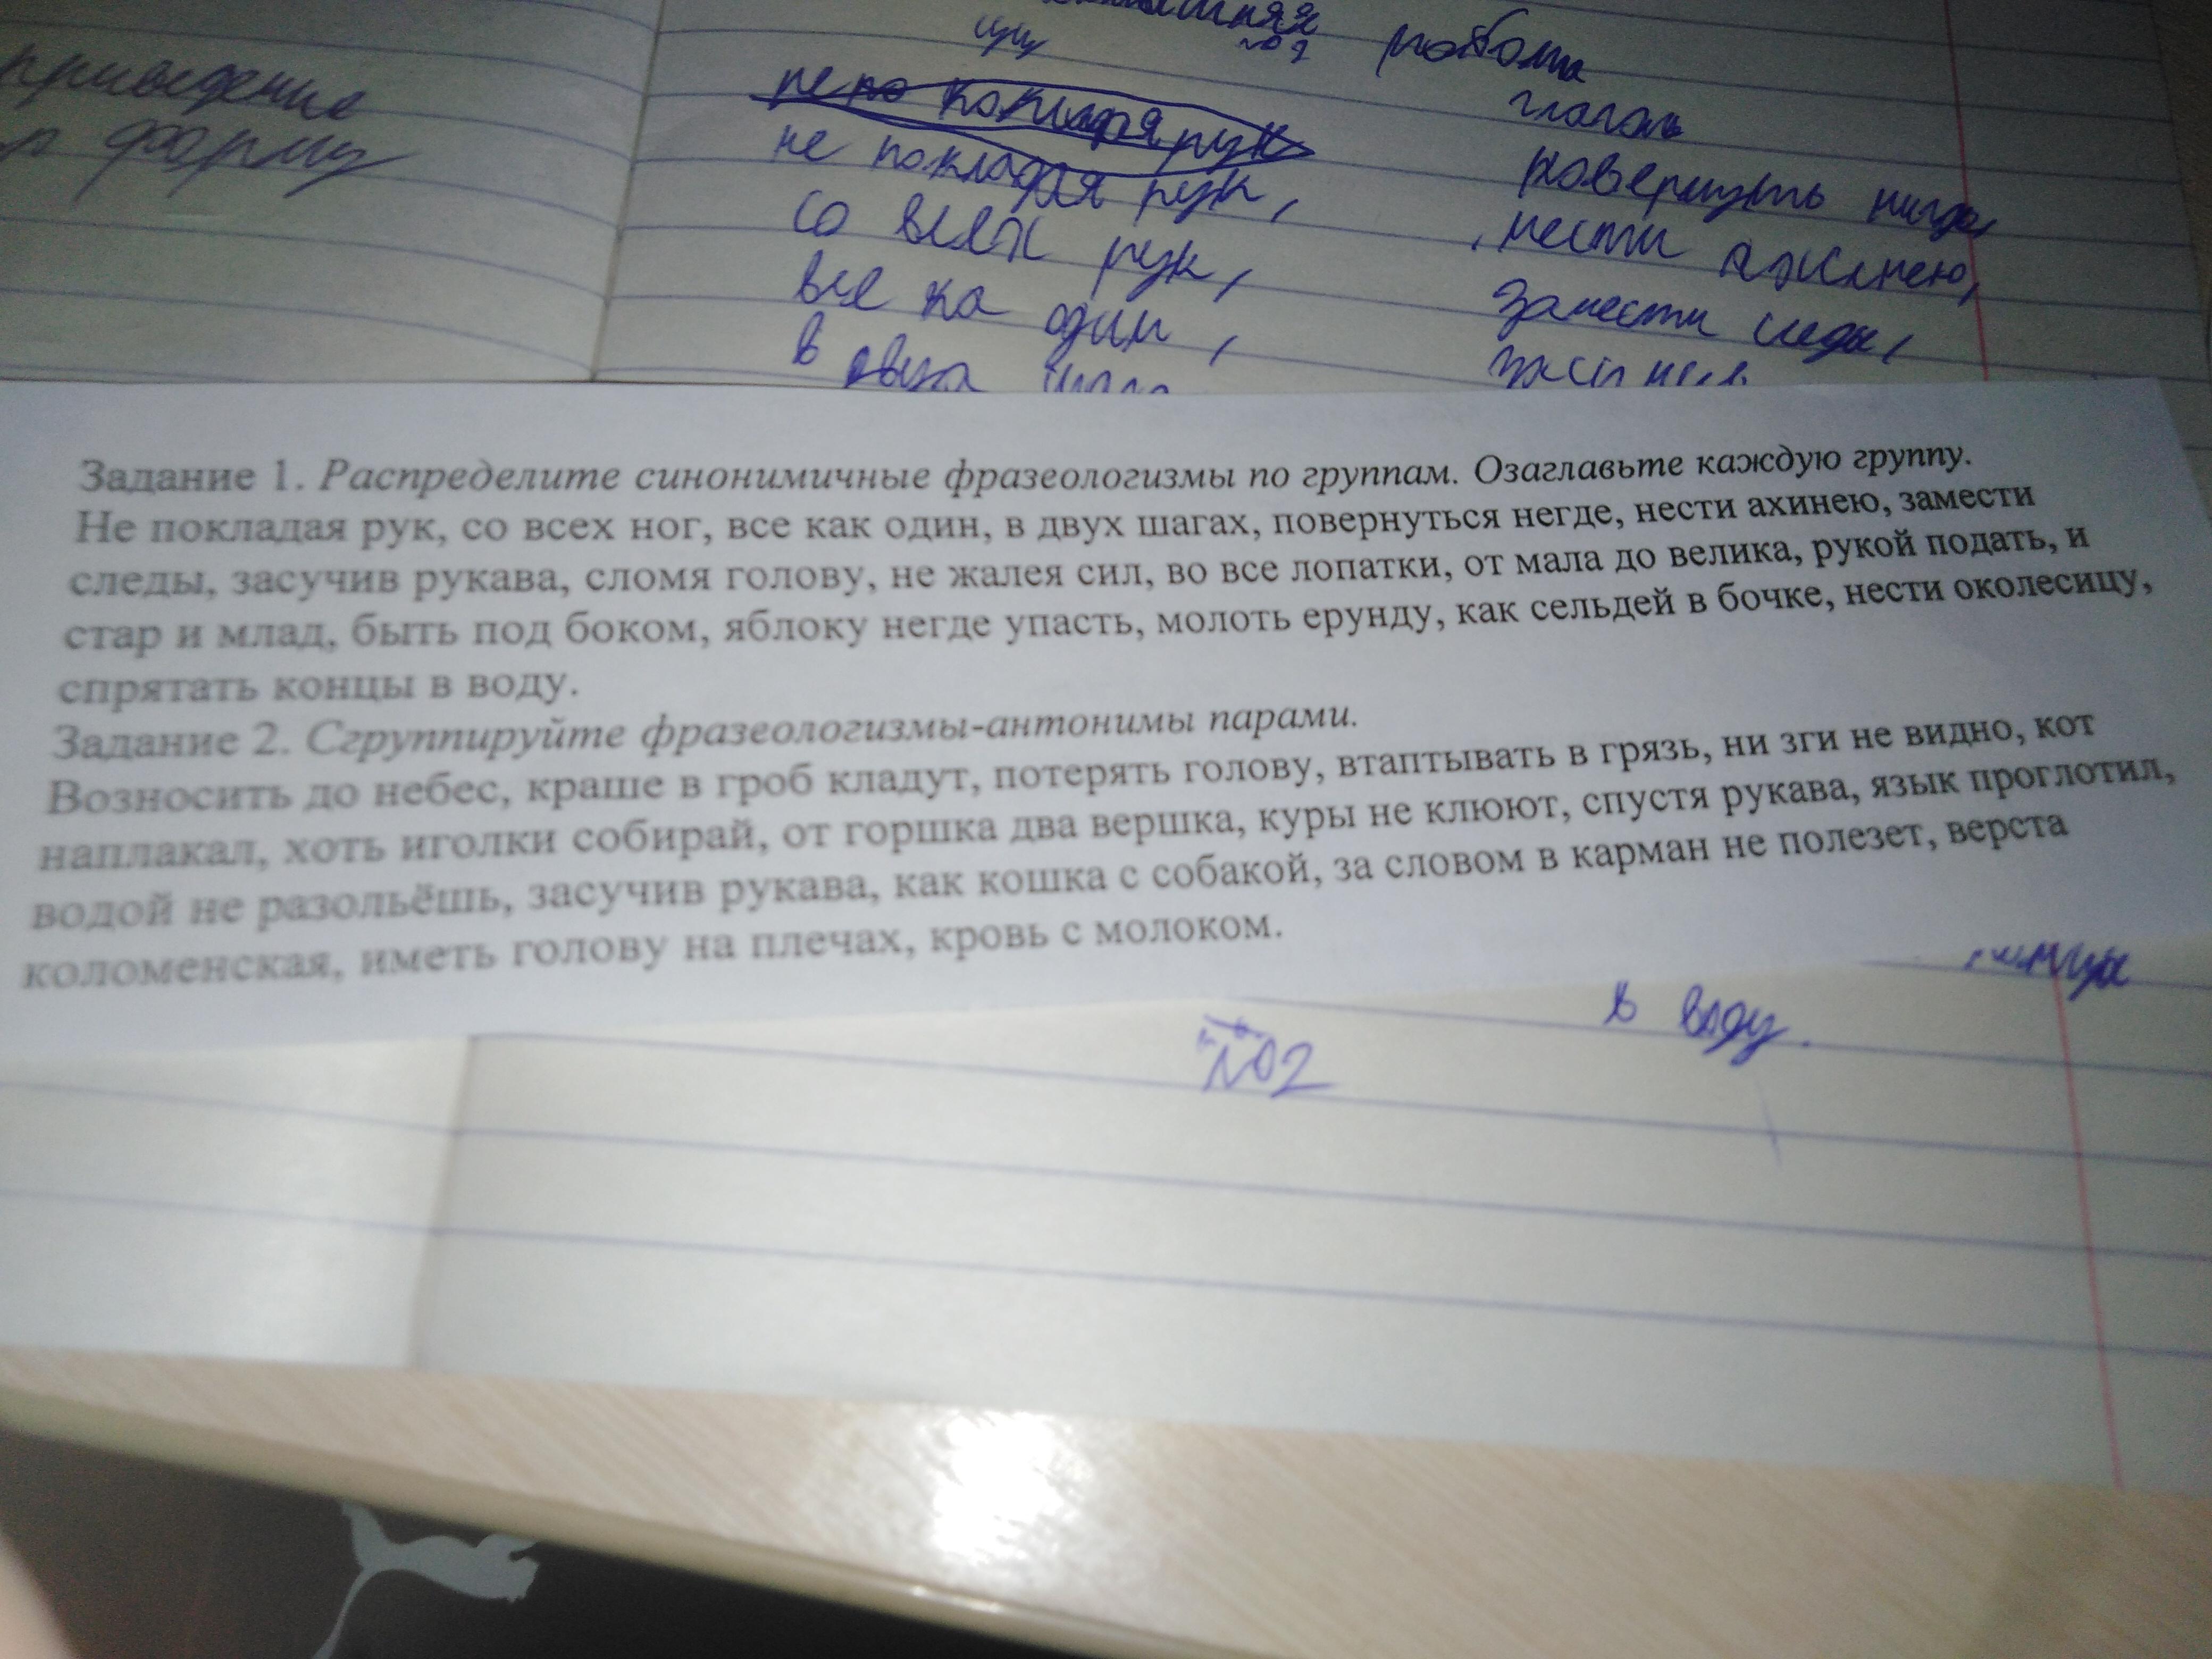 работа
приведение
форму
глагол
не покладая рук,
повернуть
со всех рук,
нести
все ка один,
замести следы,
в двух
Задание 1. Распределите синонимичные фразеологизмы по группам. Озаглавьте каждую группу.
Не покладая рук, со всех ног, все как один, в двух шагах, повернуться негде, нести ахинею, замести
следы, засучив рукава, сломя голову, не жалея сил, во все лопатки, от мала до велика, рукой подать, и
стар и млад, быть под боком, яблоку негде упасть, молоть ерунду, как сельдей в бочке, нести околесицу,
спрятать концы в воду.
Задание 2. Сгруппируйте фразеологизмы-антонимы парами.
Возносить до небес, краше в гроб кладут, потерять голову, втаптывать в грязь, ни зги не видно, кот
наплакал, хоть иголки собирай, от горшка два вершка, куры не клюют, спустя рукава, язык проглотил,
водой не разольёшь, засучив рукава, как кошка с собакой, за словом в карман не полезет, верста
коломенская, иметь голову на плечах, кровь с молоком.
в воду.
№2